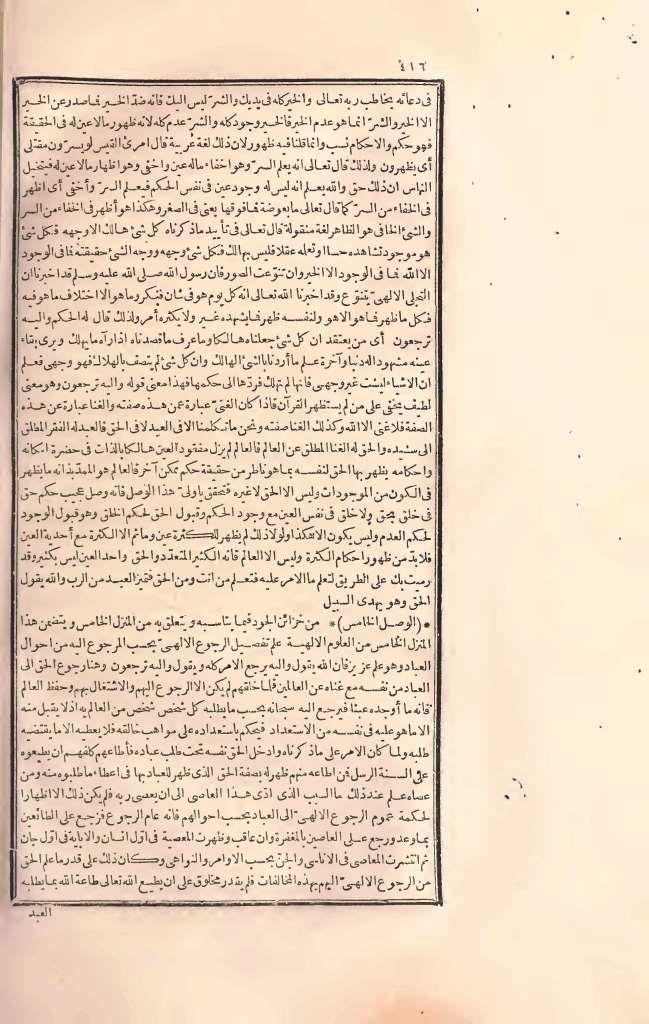 ٤١٦
فى دعائه يخاطب ربه تعالى والخير كله فى يديك والشر ليس اليك فانه ضد الخير فما صدر عن الخير
الا الخير والشر انما هو عدم الخير فالخير وجود كله والشر عدم كله لانه ظهور مالا عين له فى الحقيقة
فهو حكم والاحكام نسب وانما قلنا فيه ظهور لان ذلك لغة عربية قال امرئ القيس لو يسرّون مقتلى
أى يظهرون ولذلك قال تعالى انه يعلم السر وهو اخفاء ماله عين وأخفى وهو اظهار مالا عين له فيتخيل
الناس ان ذلك حق والله يعلم انه ليس له وجود عين فى نفس الحكم فيعلم السر وأخفى أى اظهر
فى الخفاء من السر كما قال تعالى ما بعوضة فما فوقها يعنى فى الصغر وهكذا هو أظهر فى الخفاء من السر
والشئ الخافى هو الظاهر لغة منقولة قال تعالى فى تأييد ما ذكرناه كل شئ هالك الا وجهه فكل شئ
هو موجود تشاهده حسا وتعلمه عقلا فليس بهالك فكل شئ وجهه ووجه الشئ حقيقته فما فى الوجود
الا الله فما فى الوجود الا الخير وان تنوّعت الصور فان رسول الله صلى الله عليه وسلم قد اخبرنا ان
التجلى الالهىّ يتنوّع وقد اخبرنا الله تعالى انه كل يوم هو فى شان فنكر وما هو الا اختلاف ما هو فيه
فكل ما ظهر فما هو الا هو ولنفسه ظهر فما يشهده غير ولا يكثره أمر ولذلك قال له الحكم واليه
ترجعون أى من يعتقد ان كل شئ جعلناه هالكا وما عرف ما قصدناه اذا رآه ما يهلك ويرى بقاء
عينه مشهودا له دنيا وآخرة علم ما أردنا بالشئ الهالك وان كل شئ لم يتصف بالهلاك فهو وجهى فعلم
ان الاشياء ليست غير وجهى فانها لم تهلك فردّها الى حكمها فهذا معنى قوله واليه ترجعون وهو معنى
لطيف يخفى على من لم يستظهر القرآن فاذا كان الغنىّ عبارة عمن هذه صفته والغنا عبارة عن هذه
الصفة فلا غنى الا الله وكذلك الغنا صفته ونحن ما تكلمنا الا فى العبد لا فى الحق فالعبد له الفقر المطلق
الى سيده والحق له الغنا المطلق عن العالم فالعالم لم يزل مفقود العين هالكا بالذات فى حضرة امكانه
واحكامه يظهر بها الحق لنفسه بما هو ناظر من حقيقة حكم ممكن آخر فالعالم هو الممدّ بذاته ما يظهر
فى الكون من الموجودات وليس الا الحق لا غيره فتحقق يا ولىّ هذا الوصل فانه وصل عجيب حكم حق
فى خلق بحق ولا خلق فى نفس العين مع وجود الحكم وقبول الحق لحكم الخلق وهو قبول الوجود
لحكم العدم وليس يكون الا هكذا ولولا ذلك لم يظهر للكثرة عين وما ثم الا الكثرة مع أحدية العين
فلا بدّ من ظهور احكام الكثرة وليس الا العالم فانه الكثير المتعدّد والحق واحد العين ليس بكثير وقد
رميت بك على الطريق لتعلم ما الامر عليه فتعلم من انت ومن الحق فتميز العبد من الرب والله يقول
الحق وهو يهدى السبيل
*(الوصل الخامس)* من خزائن الجود فيما يناسبه ويتعلق به من المنزل الخامس ويتضمن هذا
المنزل الخامس من العلوم الالهية علم تفصيل الرجوع الالهىّ بحسب المرجوع اليه من احوال
العباد وهو علم عزيز فان الله يقول واليه يرجع الامر كله ويقول واليه ترجعون وهنا رجوع الحق الى
العباد من نفسه مع غناه عن العالمين فلما خلقهم لم يكن الا الرجوع اليهم والاشتغال بهم وحفظ العالم
فانه ما أوجده عبثا فيرجع اليه سبحانه بحسب ما يطلبه كل شخص شخص من العالم به اذ لا يقبل منه
الا ما هو عليه فى نفسه من الاستعداد فيحكم باستعداده على مواهب خالقه فلا يعطيه الا ما يقتضيه
طلبه ولما كان الامر على ما ذكرناه وادخل الحق نفسه تحت طلب عباده فأطاعهم كلفهم ان يطيعوه
على ألسنة الرسل فمن اطاعه منهم ظهر له بصفة الحق الذى ظهر للعباد بها فى اعطاء ما طلبوه منه ومن
عصاه علم عند ذلك ما السبب الذى ادّى هذا العاصى الى ان يعصى ربه فلم يكن ذلك الا اظهارا
لحكمة عموم الرجوع الالهىّ الى العباد بحسب احوالهم فانه عام الرجوع فرجع على الطائعين
بما وعد ورجع على العاصين بالمغفرة وان عاقب وظهرت المعصية فى اوّل انسان والاباية فى اوّل جان
ثم انتشرت المعاصى فى الاناسى والجن بحسب الاوامر والنواهى وكان ذلك على قدر ما علم الحق
من الرجوع الالهىّ اليهم بهذه المخالفات فلم يقدر مخلوق على ان يطيع الله تعالى طاعة الله بما يطلبه
العبد